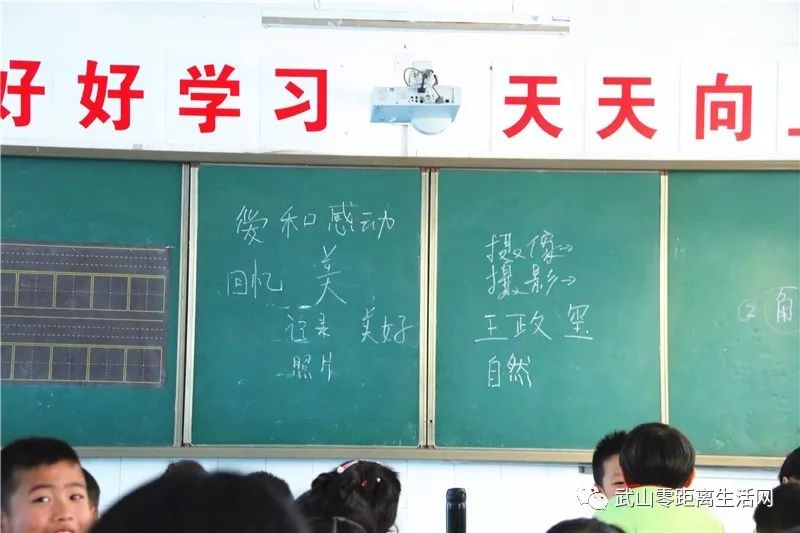 好好学习 天天向上
爱和感动
回忆 美
记录 美好
照片
摄像→
摄影→
王政玺
自然
② 角
武山零距离生活网